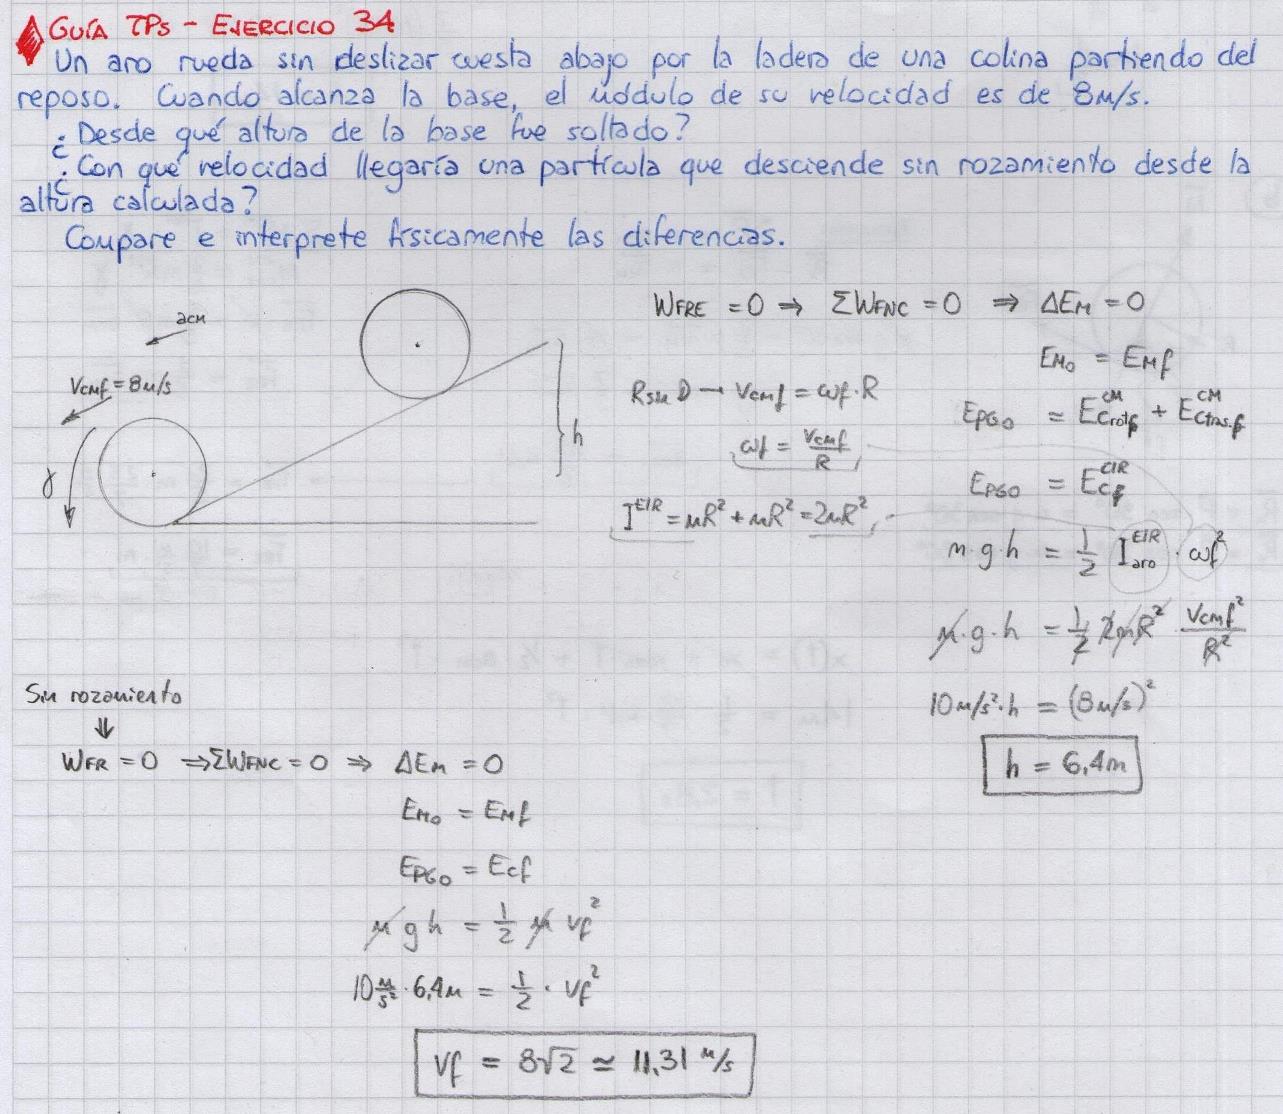 GUÍA TPs - EJERCICIO 34
Un aro rueda sin deslizar cuesta abajo por la ladera de una colina partiendo del
reposo. Cuando alcanza la base, el módulo de su velocidad es de 8m/s.
¿Desde qué altura de la base fue soltado?
¿Con qué velocidad llegaría una partícula que desciende sin rozamiento desde la
altura calculada?
Compare e interprete físicamente las diferencias.
acm
Vcmf = 8m/s
γ
h
WFRE = 0 ⇒ ΣWFNC = 0 ⇒ ΔEM = 0
EM0 = EMf
R sin D → Vcmf = ωf·R
ωf = Vcmf/R
I^EIR = mR² + mR² = 2mR²
EPG0 = Ec rot f^CM + Ec tras f^CM
EPG0 = Ecf^CIR
m·g·h = 1/2 I aro^EIR · ωf²
m·g·h = 1/2 2mR² · Vcmf²/R²
10m/s²·h = (8m/s)²
h = 6,4m
Sin rozamiento
⇓
WFR = 0 ⇒ ΣWFNC = 0 ⇒ ΔEM = 0
EM0 = EMf
EPG0 = Ecf
m g h = 1/2 m vf²
10 m/s² · 6,4m = 1/2 · vf²
vf = 8√2 ≃ 11,31 m/s